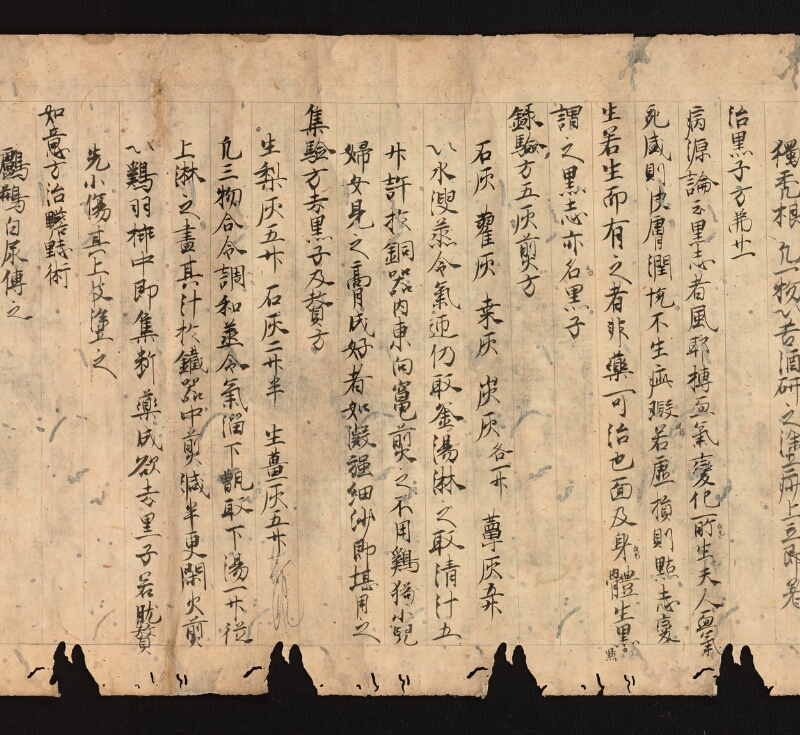 獨禿根 凢一物以苦酒研之塗病上立即差
治黒子方苐廿一
病源論云黒志者風耶搏血氣變化所生夫人血氣
充盛則皮膚潤悦不生疵瑕若虚損則點志變
生若生而有之者非藥可治也面及身體生黒點
謂之黒志亦名黒子
録驗方五灰煎方
石灰 藿灰 桒灰 炭灰各一升 蕈灰五升
以水溲蒸令氣迊仍取釜湯淋之取清汁五
升許於銅器内東向竃煎之不用鷄猫小兒
婦女見之膏成好者如凝強細沙即堪用之
集驗方去黒子及贅方
生梨灰五升 石灰二升半 生薑灰五升
凢三物合令調和蒸令氣溜下甑取下湯一升従
上淋之盡其汁於鐵器中煎減半更閑火煎
以鷄羽揷中即焦斷藥成欲去黒子若肬贅
先小傷其上皮塗之
如意方治黶䵟術
鸕鷀白屎傅之